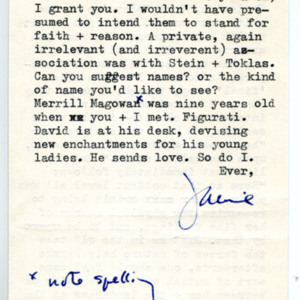 I grant you. I wouldn't have pre-
sumed to intend them to stand for
faith + reason. A private, again
irrelevant (and irreverent) as-
sociation was with Stein + Toklas.
Can you suggest names? or the kind
of name you'd like to see?
Merrill Magowan* was nine years old
when you + I met. Figurati.
David is at his desk, devising
new enchantments for his young
ladies. He sends love. So do I.
Ever,
* note spelling